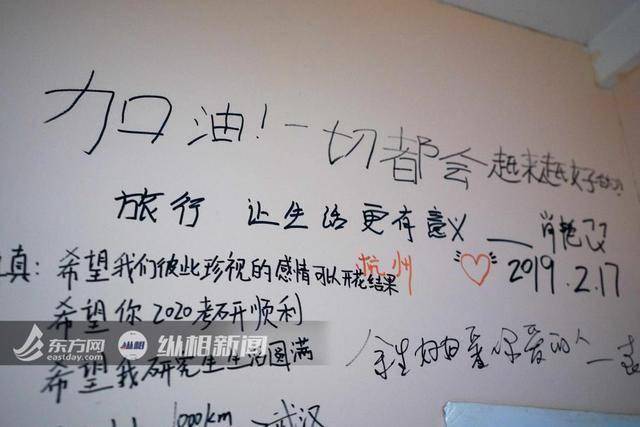 加油!一切都会越来越好的!
旅行 让生活更有意义 —— 肖艳
2019.2.17
真:希望我们彼此珍视的感情可以开花结果
杭州
希望你2020考研顺利
希望我研究生生活圆满
余生好好爱你爱的人 —
1000km 武汉
东方网
eastday.com
纵相
纵相新闻